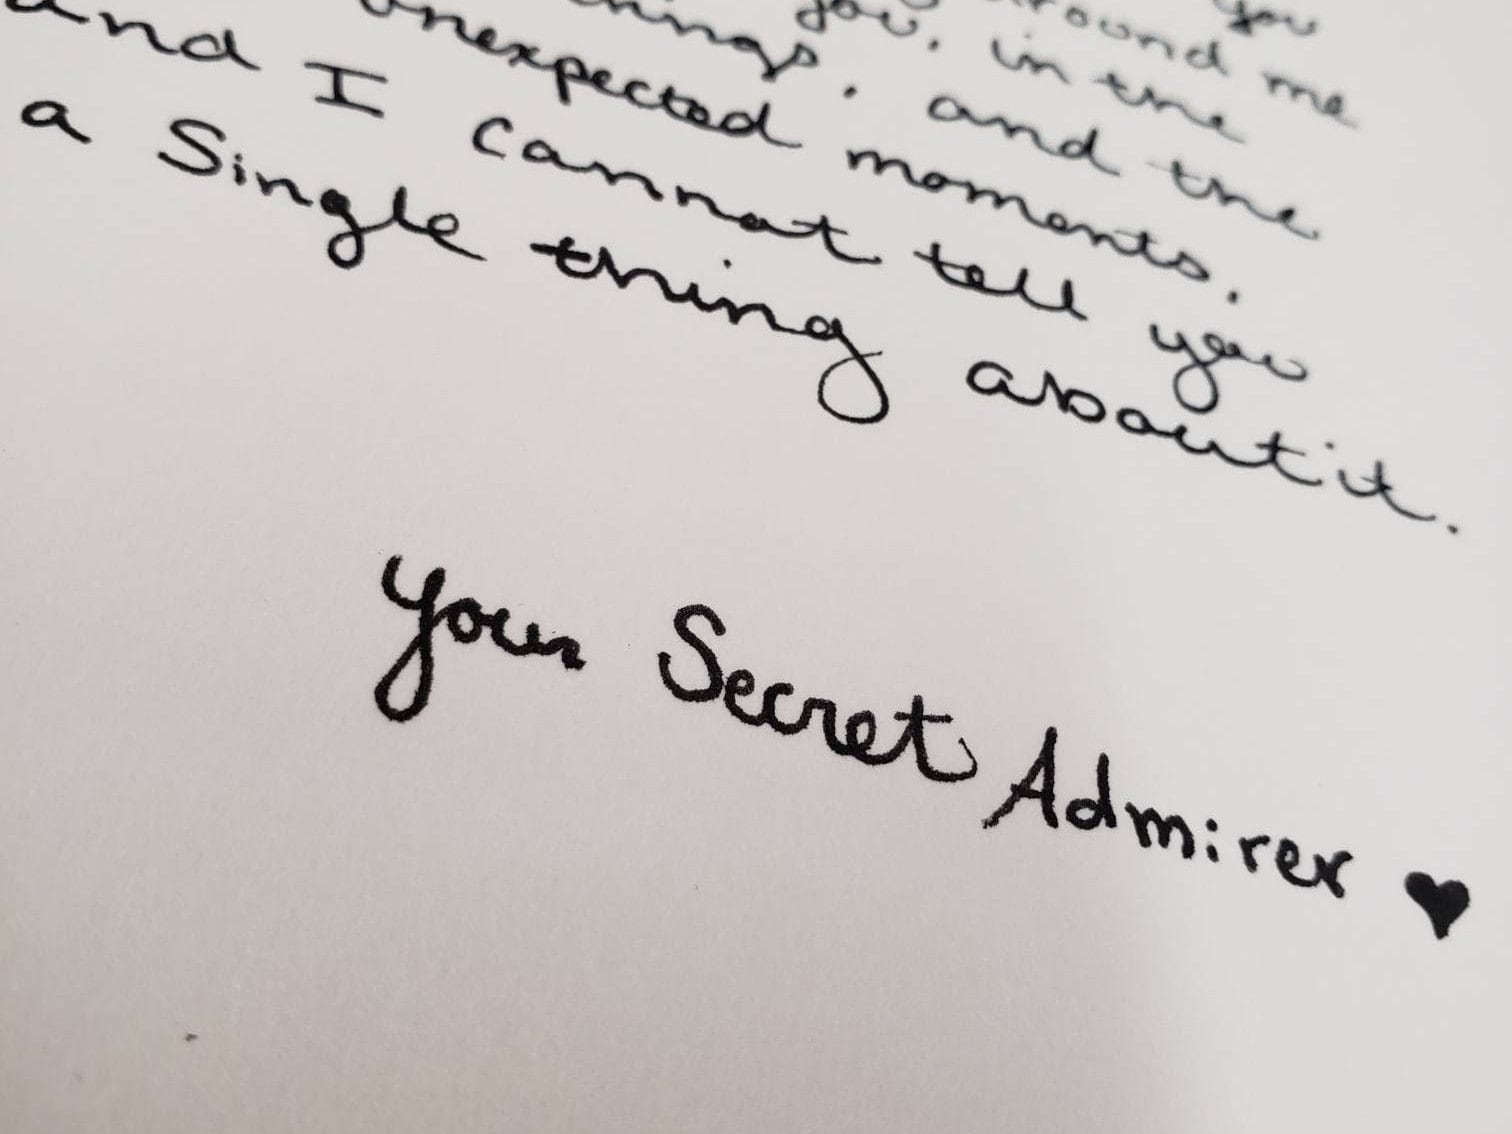 you
round me
you, in the
and the
unexpected moments.
and I cannot tell you
a Single thing about it.
your Secret Admirer